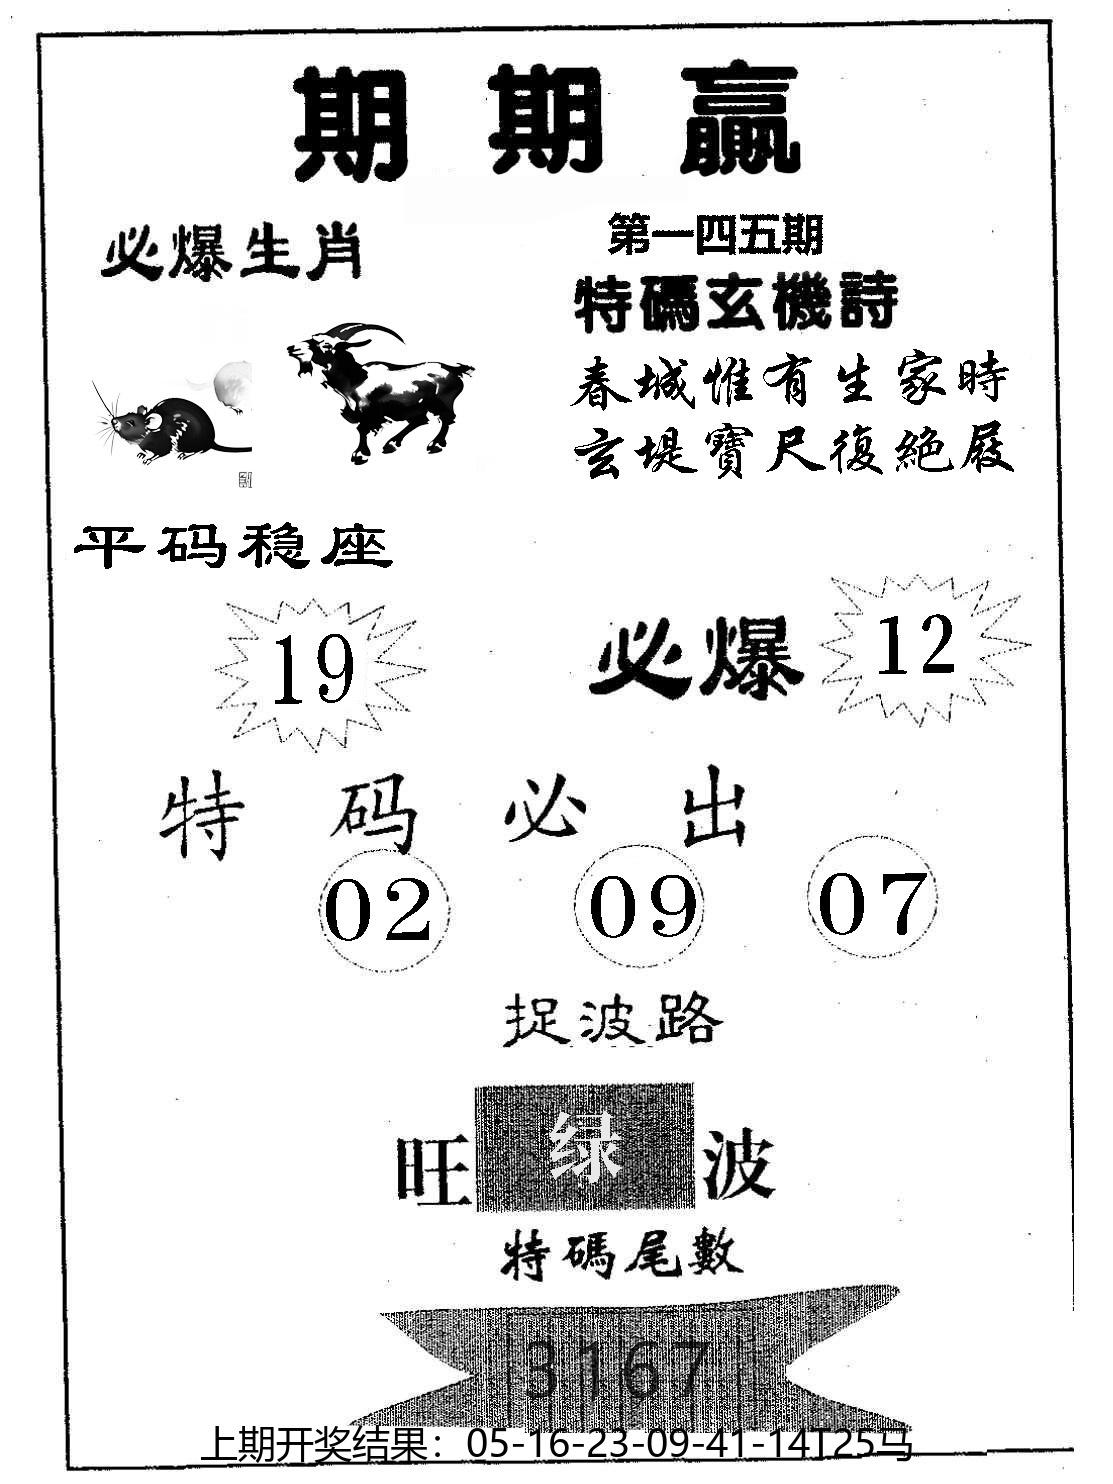 期期贏
必爆生肖
第一四五期
特碼玄機詩
春城惟有生家時
玄堤寶尺復絕屐
平码稳座
19
必爆
12
特码必出
02 09 07
捉波路
旺绿波
特碼尾數
3167
上期开奖结果：05-16-23-09-41-14T25马